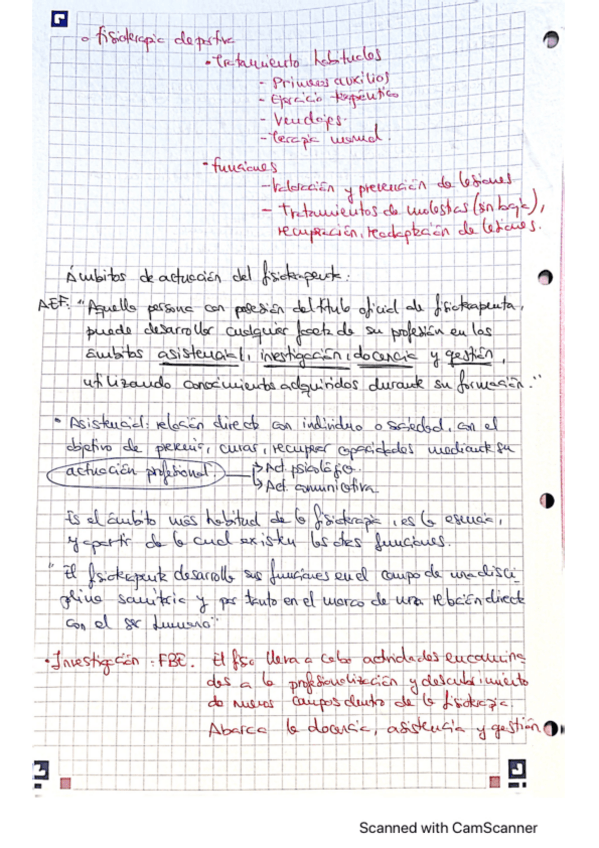 o fisioterapia deportiva
• Tratamiento habituales
- Primeros auxilios
- Ejercicio terapéutico
- Vendajes.
- Terapia manual.
• funciones
- Valoración y prevención de lesiones
- Tratamientos de molestias (sin baja),
recuperación, readaptación de lesiones.
Ámbitos de actuación del fisioterapeuta:
AEF: "Aquella persona con posesión del título oficial de fisioterapeuta,
puede desarrollar cualquier faceta de su profesión en los
ámbitos asistencial, investigación, docencia y gestión,
utilizando conocimientos adquiridos durante su formación."
• Asistencial: relación directa con individuo o sociedad, con el
objetivo de prevenir, curar, recuperar capacidades mediante su
actuación profesional → Act. psicológica.
↳ Act. comunicativa
Es el ámbito más habitual de la fisioterapia, es la esencia,
y a partir de la cual existen las otras funciones.
"El fisioterapeuta desarrolla sus funciones en el campo de una disci-
plina sanitaria y por tanto en el marco de una relación directa
con el ser humano"
• Investigación: FBE. El fisio lleva a cabo actividades encamina-
das a la profesionalización y descubrimiento
de nuevos campos dentro de la fisioterapia.
Abarca la docencia, asistencia y gestión
Scanned with CamScanner